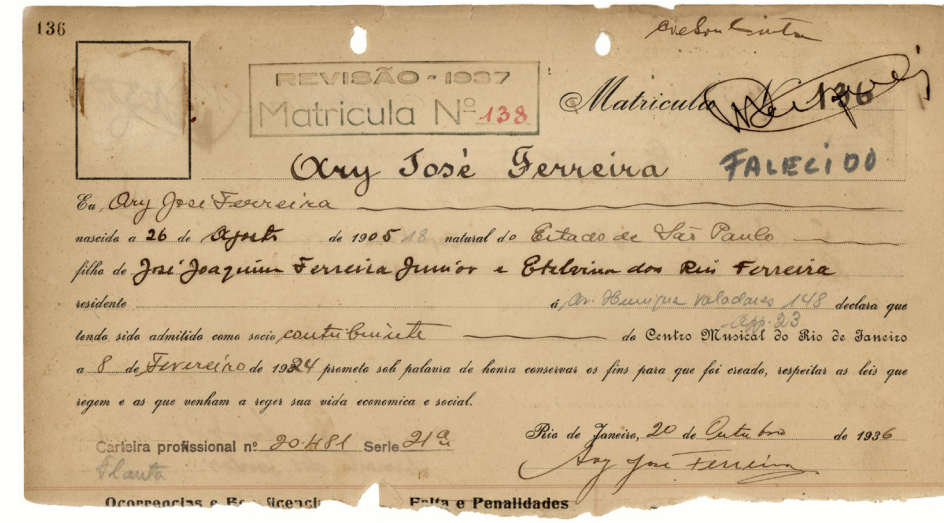 136
REVISÃO - 1937
Matricula Nº 138
Matricula 136
Ary José Ferreira
FALECIDO
Eu, Ary José Ferreira
nascido a 26 de Agosto de 1905 18 natural do Estado de São Paulo
filho de José Joaquim Ferreira Junior e Etelvina dos Reis Ferreira
residente á Av. Henrique Valadares 148 declara que
app. 23
tendo sido admitido como socio contribuinte do Centro Musical do Rio de Janeiro
a 8 de Fevereiro de 1924 prometo sob palavra de honra conservar os fins para que foi creado, respeitar as leis que
regem e as que venham a reger sua vida economica e social.
Rio de Janeiro, 20 de Outubro de 1936
Carteira profissional nº 20.481 Serie 21ª
Ary José Ferreira
Flauta
Ocorrencias e Falta e Penalidades